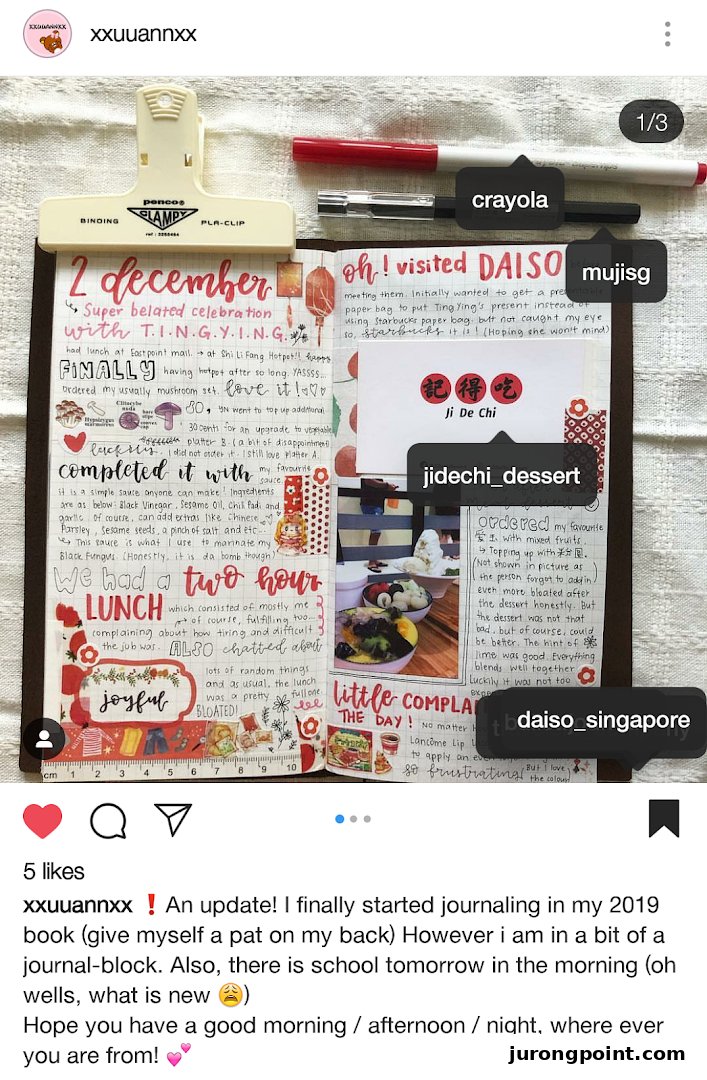 xxuuannxx
1/3
crayola
mujisg
penco®
BINDING CLAMPY PLA-CLIP
2 december
Super belated celebration
with T.I.N.G.Y.I.N.G.
had lunch at Eastpoint mall. → at Shi Li Fang Hotpot!! happy
FINALLY having hotpot after so long. YASSSS...
ordered my usually mushroom set. love it!
so, YN went to top up additional
30 cents for an upgrade to vegetable
platter B. (a bit of disappointment
I did not order it. I still love platter A.
completed it with my favourite
sauce
it is a simple sauce anyone can make! Ingredients
are as below: Black Vinegar, Sesame Oil, Chili Padi and
garlic. of course, can add extras like Chinese
Parsley, Sesame seeds, a pinch of salt and etc...
↳ This sauce is what I use to marinate my
Black Fungus (Honestly, it is da bomb though)
We had a two hour
LUNCH which consisted of mostly me
→ of course, fulfilling too...
complaining about how tiring and difficult
the job was. ALSO chatted about
lots of random things
and as usual, the lunch
was a pretty full one.
BLOATED!
joyful
cm 1 2 3 4 5 6 7 8 9 10
oh! visited DAISO
meeting them. Initially wanted to get a presentable
paper bag to put TingYing's present instead of
using Starbucks paper bag. but not caught my eye
so, starbucks it is! (Hoping she won't mind)
記得吃
Ji De Chi
jidechi_dessert
ordered my favourite
with mixed fruits.
↳ Topping up with
(Not shown in picture as
the person forgot to add in)
even more bloated after
the dessert honestly. But
the dessert was not that
bad. but of course, could
be better. The hint of
lime was good. Everything
blends well together.
Luckily it was not too
little COMPLAI
THE DAY! No matter
Lancôme Lip
to apply an
so frustrating! But I love
the colour
daiso_singapore
5 likes
xxuuannxx ❗ An update! I finally started journaling in my 2019
book (give myself a pat on my back) However i am in a bit of a
journal-block. Also, there is school tomorrow in the morning (oh
wells, what is new 😩)
Hope you have a good morning / afternoon / night, where ever
you are from! 💕
jurongpoint.com